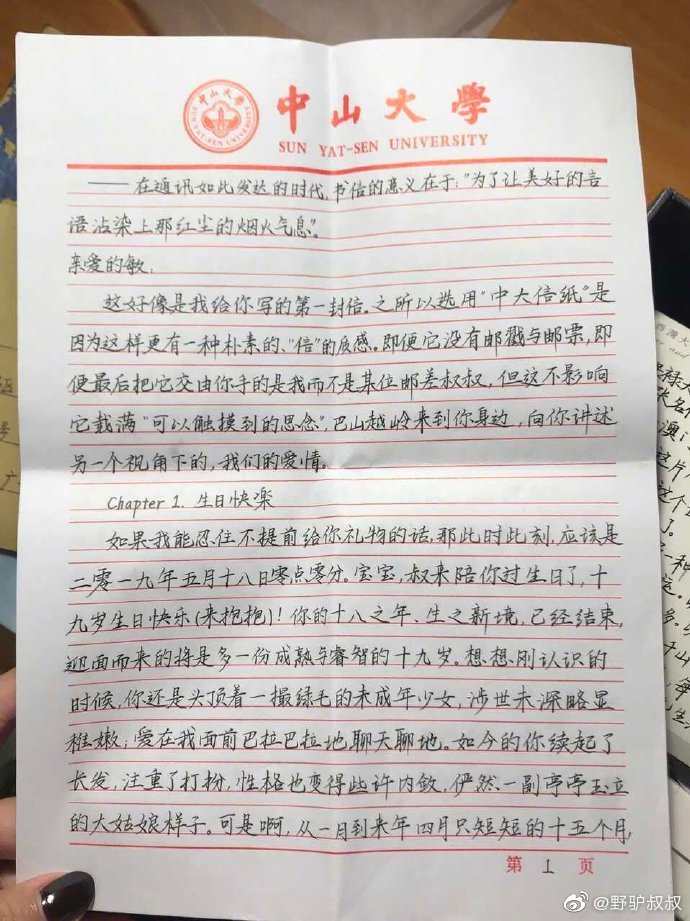 中山大學
SUN YAT-SEN UNIVERSITY
——在通讯如此发达的时代,书信的意义在于:"为了让美好的言
语沾染上那红尘的烟火气息"。
亲爱的敏:
这好像是我给你写的第一封信。之所以选用"中大信纸"是
因为这样更有一种朴素的、"信"的质感。即便它没有邮戳与邮票,即
便最后把它交由你手的是我而不是某位邮差叔叔,但这不影响
它载满"可以触摸到的思念",巴山越岭来到你身边,向你讲述
另一个视角下的,我们的爱情。
Chapter 1. 生日快樂
如果我能忍住不提前给你礼物的话,那此时此刻,应该是
二零一九年五月十八日零点零分。宝宝,叔来陪你过生日了,十
九岁生日快乐(来抱抱)!你的十八之年、生之新境,已经结束,
迎面而来的将是多一份成熟与睿智的十九岁。想想刚认识的
时候,你还是头顶着一撮绿毛的未成年少女,涉世未深略显
稚嫩,爱在我面前巴拉巴拉地聊天聊地。如今的你续起了
长发,注重了打扮,性格也变得些许内敛,俨然一副亭亭玉立
的大姑娘样子。可是啊,从一月到来年四月只短短的十五个月,
第 1 页
@野驴叔叔